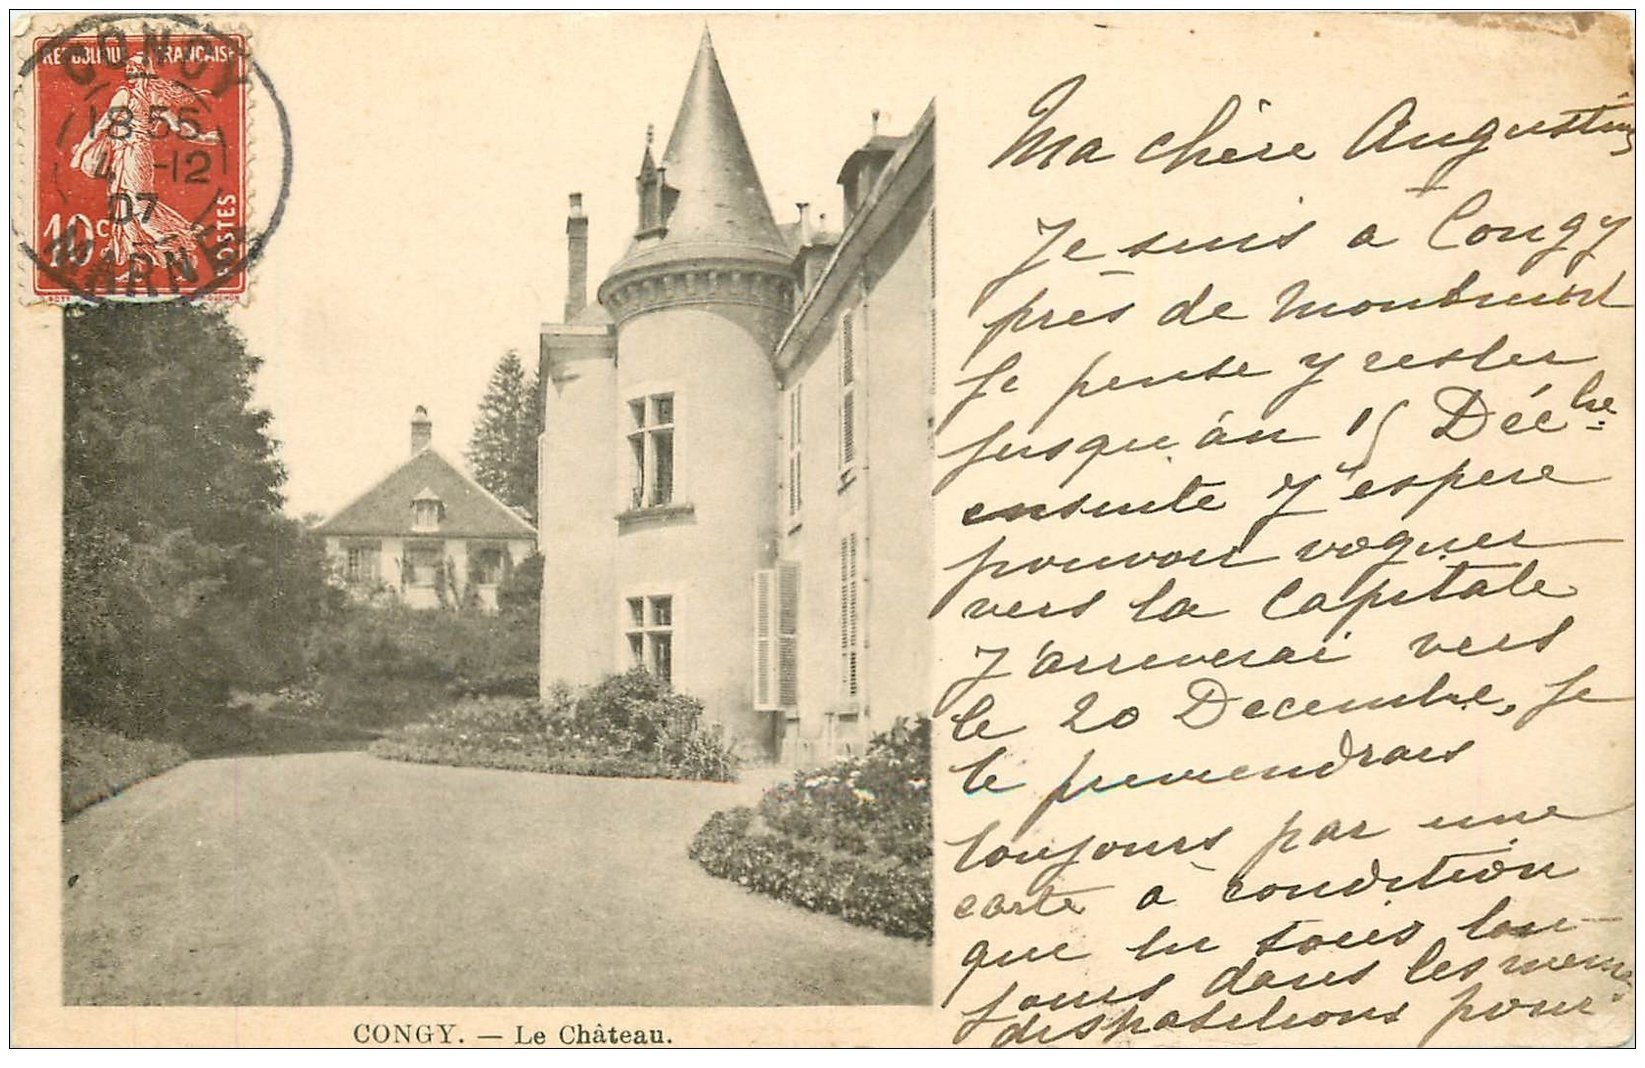 REPUBLIQUE FRANÇAISE
10c
POSTES
CONGY
18 55
4 -12
07
MARNE
CONGY. — Le Château.
Ma chère Augustine
Je suis a Congy
près de Montmort
Je pense y rester
jusqu'au 15 Déc bre
ensuite J'espere
pouvoir voguer
vers la Capitale
J'arriverai vers
le 20 Decembre, Je
te previendrais
toujours par une
carte à condition
que tu sois tou-
jours dans les meme
dispositions pour